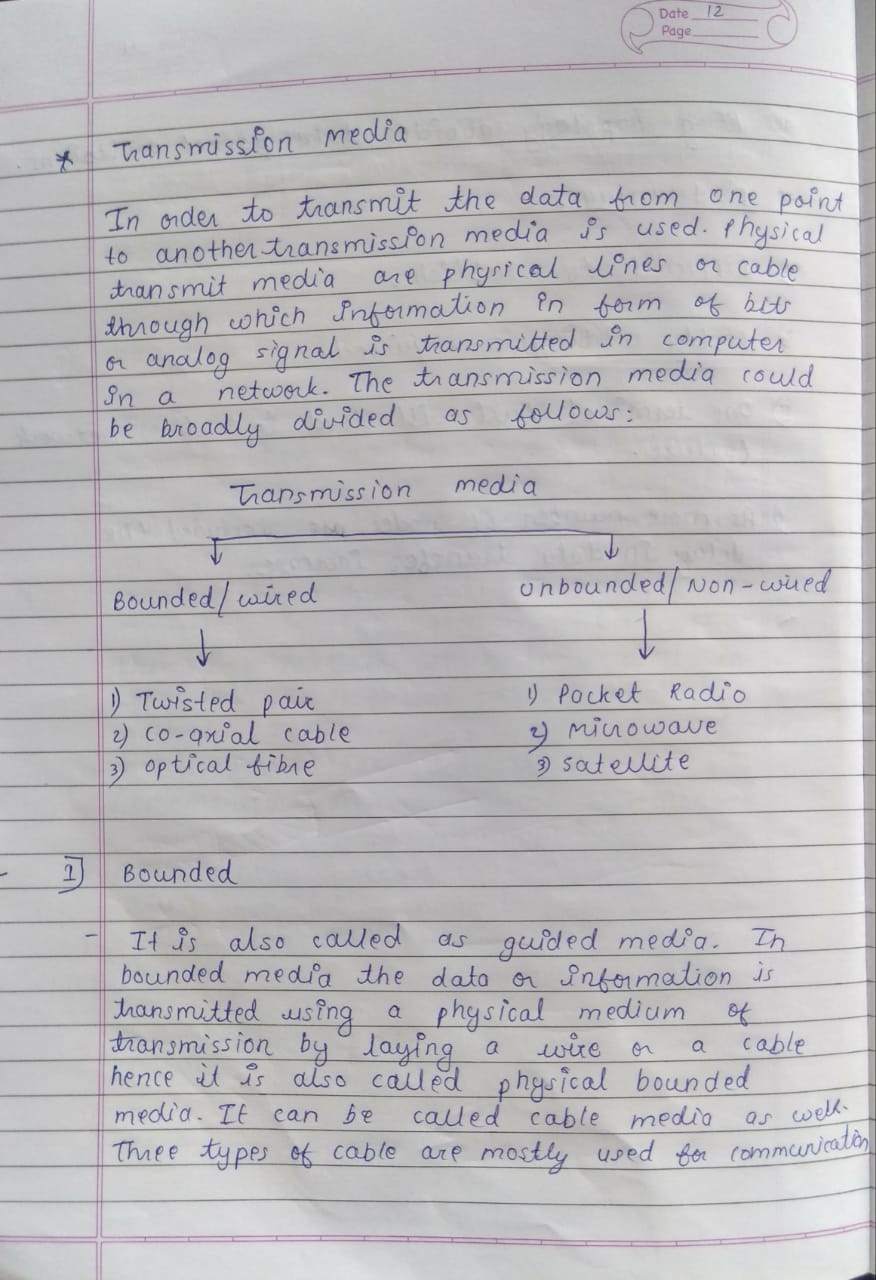 Date 12
Page
* Transmission media
In order to transmit the data from one point
to another transmission media is used. Physical
transmit media are physical lines or cable
through which information in form of bits
or analog signal is transmitted in computer
in a network. The transmission media could
be broadly divided as follows:
Transmission media
Bounded/wired Unbounded/Non-wired
1) Twisted pair 1) Pocket Radio
2) co-axial cable 2) Microwave
3) optical fibre 3) satellite
1] Bounded
- It is also called as guided media. In
bounded media the data or information is
transmitted using a physical medium of
transmission by laying a wire or a cable
hence it is also called physical bounded
media. It can be called cable media as well.
Three types of cable are mostly used for communication